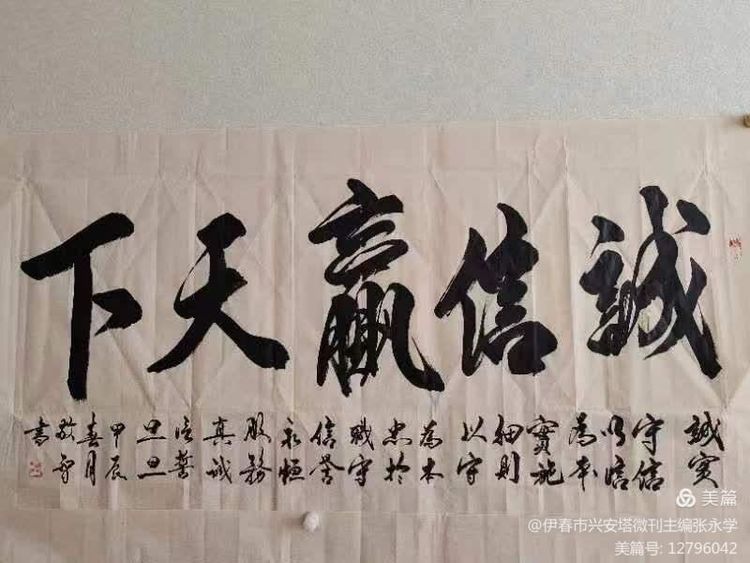 誠信贏天下
誠實
守信
信
為本
實施
細則
以守
為本
忠於
職守
信譽
永恒
服務
真诚
信誓
旦旦
甲辰
喜月
敬
書
美篇
@伊春市兴安塔微刊主编张永学
美篇号: 12796042